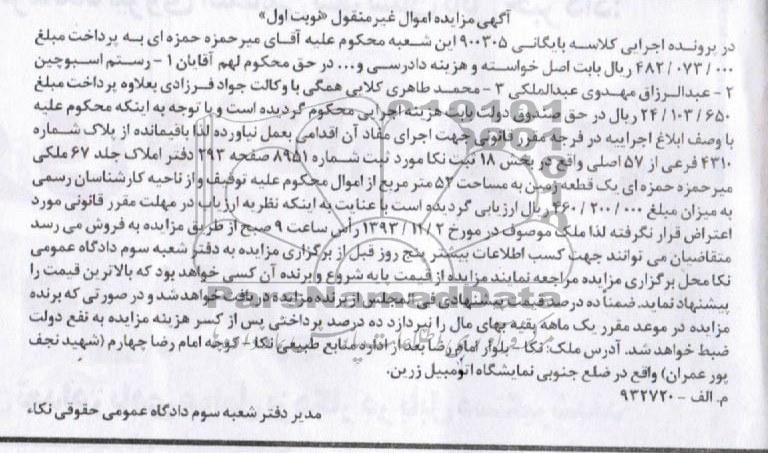 آگهی مزایده اموال غیر منقول «نوبت اول»
در پرونده اجرایی کلاسه بایگانی ۹۰۰۳۰۵ این شعبه محکوم علیه آقای میرحمزه حمزه ای به پرداخت مبلغ
۴۸۲/۰۷۳/۰۰۰ ریال بابت اصل خواسته و هزینه دادرسی و... در حق محکوم لهم آقایان ۱- رستم اسبوچین
۲- عبدالرزاق مهدوی عبدالملکی ۳- محمد طاهری کلایی همگی با وکالت جواد فرزادی بعلاوه پرداخت مبلغ
۲۴/۱۰۳/۶۵۰ ریال در حق صندوق دولت بابت هزینه اجرایی محکوم گردیده است و با توجه به اینکه محکوم علیه
با وصف ابلاغ اجراییه در فرجه مقرر قانونی جهت اجرای مفاد آن اقدامی بعمل نیاورده لذا باقیمانده از پلاک شماره
۴۳۱۰ فرعی از ۵۷ اصلی واقع در بخش ۱۸ ثبت نکا مورد ثبت شماره ۸۹۵۱ صفحه ۲۹۳ دفتر املاک جلد ۶۷ ملکی
میرحمزه حمزه ای یک قطعه زمین به مساحت ۵۲ متر مربع از اموال محکوم علیه توقیف و از ناحیه کارشناسان رسمی
به میزان مبلغ ۲۶۰/۲۰۰/۰۰۰ ریال ارزیابی گردیده است با عنایت به اینکه نظریه ارزیاب در مهلت مقرر قانونی مورد
اعتراض قرار نگرفته لذا ملک موصوف در مورخ ۱۳۹۳/۱۱/۲ رأس ساعت ۹ صبح از طریق مزایده به فروش می رسد
متقاضیان می توانند جهت کسب اطلاعات بیشتر پنج روز قبل از برگزاری مزایده به دفتر شعبه سوم دادگاه عمومی
نکا محل برگزاری مزایده مراجعه نمایند مزایده از قیمت پایه شروع و برنده آن کسی خواهد بود که بالاترین قیمت را
پیشنهاد نماید. ضمناً ده درصد قیمت پیشنهادی فی المجلس از برنده مزایده دریافت خواهد شد و در صورتی که برنده
مزایده در موعد مقرر یک ماهه بقیه بهای مال را نپردازد ده درصد پرداختی پس از کسر هزینه مزایده به نفع دولت
ضبط خواهد شد. آدرس ملک: نکا - بلوار امام رضا بعد از اداره منابع طبیعی نکا - کوچه امام رضا چهارم (شهید نجف
پور عمران) واقع در ضلع جنوبی نمایشگاه اتومبیل زرین.
م. الف - ۹۳۲۷۲۰
مدیر دفتر شعبه سوم دادگاه عمومی حقوقی نکاء
ParsNamadData